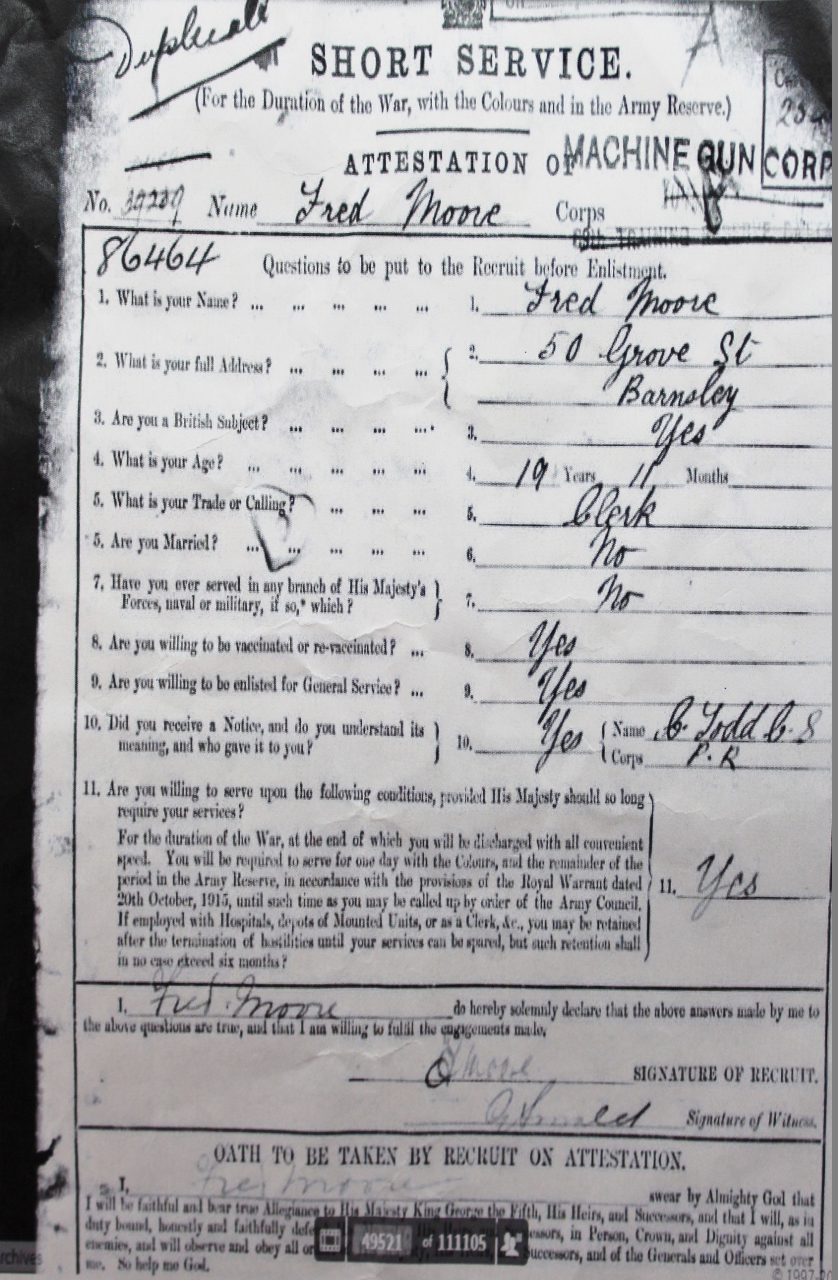 Duplicate
SHORT SERVICE.
(For the Duration of the War, with the Colours and in the Army Reserve.)
ATTESTATION OF MACHINE GUN CORP
No. 39239 Name Fred Moore Corps
86464 Questions to be put to the Recruit before Enlistment.
1. What is your Name? ... ... ... ... ... 1. Fred Moore
2. What is your full Address? ... ... ... ... 2. 50 Grove St
Barnsley
3. Are you a British Subject? ... ... ... ... 3. Yes
4. What is your Age? ... ... ... ... ... 4. 19 Years 11 Months
5. What is your Trade or Calling? ... ... ... 5. Clerk
5. Are you Married? ... ... ... ... ... 6. No
7. Have you ever served in any branch of His Majesty's
Forces, naval or military, if so,* which? 7. No
8. Are you willing to be vaccinated or re-vaccinated? ... 8. Yes
9. Are you willing to be enlisted for General Service? ... 9. Yes
10. Did you receive a Notice, and do you understand its
meaning, and who gave it to you? 10. Yes Name C. Todd C. S
Corps P. R
11. Are you willing to serve upon the following conditions, provided His Majesty should so long
require your services?
For the duration of the War, at the end of which you will be discharged with all convenient
speed. You will be required to serve for one day with the Colours, and the remainder of the
period in the Army Reserve, in accordance with the provisions of the Royal Warrant dated
20th October, 1915, until such time as you may be called up by order of the Army Council.
If employed with Hospitals, depots of Mounted Units, or as a Clerk, &c., you may be retained
after the termination of hostilities until your services can be spared, but such retention shall
in no case exceed six months? 11. Yes
I, Fred Moore do hereby solemnly declare that the above answers made by me to
the above questions are true, and that I am willing to fulfil the engagements made.
Moore SIGNATURE OF RECRUIT.
Signature of Witness.
OATH TO BE TAKEN BY RECRUIT ON ATTESTATION.
I, Fred Moore swear by Almighty God that
I will be faithful and bear true Allegiance to His Majesty King George the Fifth, His Heirs, and Successors, and that I will, as in
duty bound, honestly and faithfully in Person, Crown, and Dignity against all
enemies, and will observe and obey all Successors, and of the Generals and Officers set over
me. So help me God.
49521 of 111105